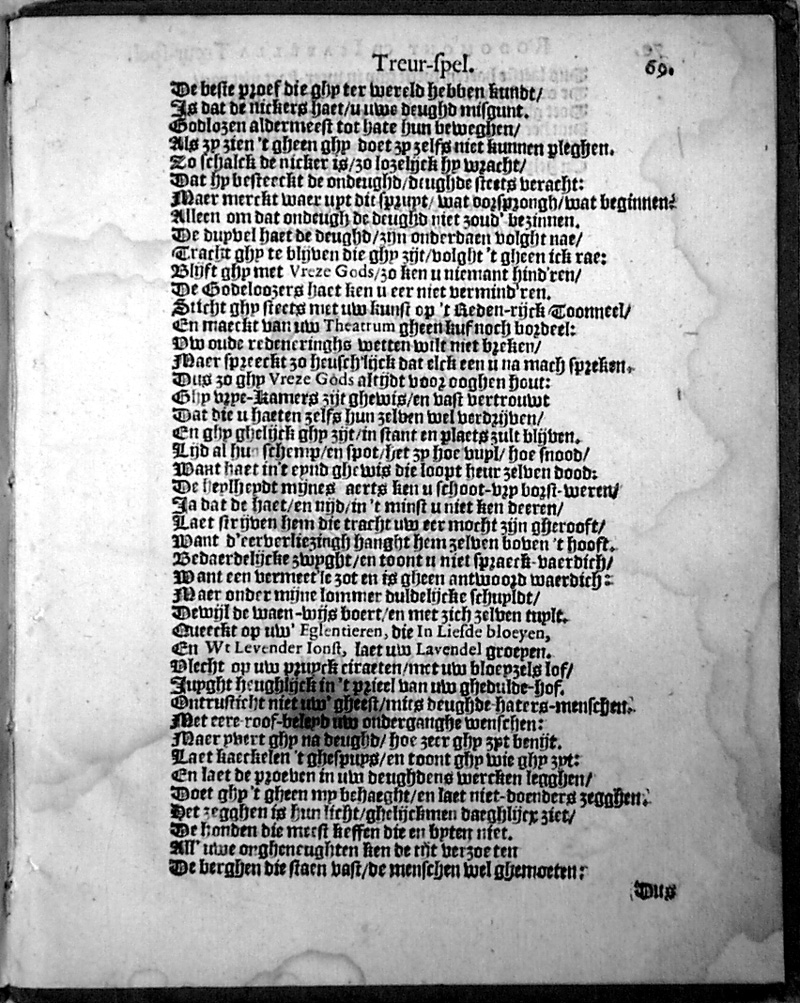 Treur-spel. 69.
De beste proef die ghy ter wereld hebben kundt/
Is dat de nickers haet/u uwe deughd misgunt.
Godlozen aldermeest tot hate hun beweghen/
Als zy zien 't gheen ghy doet zy zelfs niet kunnen pleghen.
Zo schalck de nicker is/zo lozelijck hy wracht/
Dat hy besteeckt de ondeughd/deughde steets veracht:
Maer merckt waer uyt die spruyt/wat oorsprongh/wat beginnen?
Alleen om dat ondeugh de deughd niet zoud' bezinnen.
De duyvel haet de deughd/zijn onderdaen volght nae/
Tracht ghy te blijven die ghy zijt/volght 't gheen ick rae:
Blijft ghy met Vreze Gods/zo ken u niemant hind'ren/
De Godeloozers haet ken u eer niet vermind'ren.
Sticht ghy steets met uw kunst op 't Reden-rijck Toonneel/
En maeckt van uw Theatrum gheen kuf noch bordeel:
Uw oude redeneringhs wetten wilt niet breken/
Maer spreeckt zo heusch'lijck dat elck een u na mach spreken.
Dus zo ghy Vreze Gods altijdt voor ooghen hout:
Ghy vrye-Kamers zijt ghewis/en vast vertrouwt
Dat die u haeten zelfs hun zelven wel verdrijven/
En ghy ghelijck ghy zijt/in stant en plaets zult blijven.
Lijd al hun schemp/en spot/het zy hoe vuyl/hoe snood/
Want haet in't eynd ghewis die loopt heur zelven dood:
De heylheydt mijnes aerts ken u schoot-vry borst-weren/
Ja dat de haet/en nijd/in 't minst u niet ken deeren/
Laet strijven hem die tracht uw eer mocht zijn gherooft/
Want d'eerverliezingh hanght hem zelven boven 't hooft.
Bedaerdelijcke zwyght/en toont u niet spraeck-vaerdich/
Want een vermeet'le zot en is gheen antwoord waerdich:
Maer onder mijne lommer duldelijcke schuyldt/
Dewijl de waen-wijs boert/en met zich zelven tuylt.
Queeckt op uw' Eglentieren, die In Liefde bloeyen,
En Wt Levender Ionst, laet uw Lavendel groeyen.
Vlecht op uw pruyck ciraeten/met uw bloeyzels lof/
Juyght heughlijck in 't prieel van uw ghedulde-hof.
Ontrusticht niet uw' gheest/mits deughde-haters-menschen.
Met eere roof-beleyd uw onderganghe wenschen:
Maer yvert ghy na deughd/hoe zeer ghy zyt benijt.
Laet kaeckelen 't ghespuys/en toont ghy wie ghy zyt:
En laet de proeven in uw deughdens wercken legghen/
Doet ghy 't gheen my behaeght/en laet niet-doenders zegghen.
Het zegghen is hun licht/ghelijckmen daeghlijcx ziet/
De honden die meest keffen die en byten niet.
All' uwe ongheneughten ken de tijt verzoeten
De berghen die staen vast/de menschen wel ghemoeten:
Dus